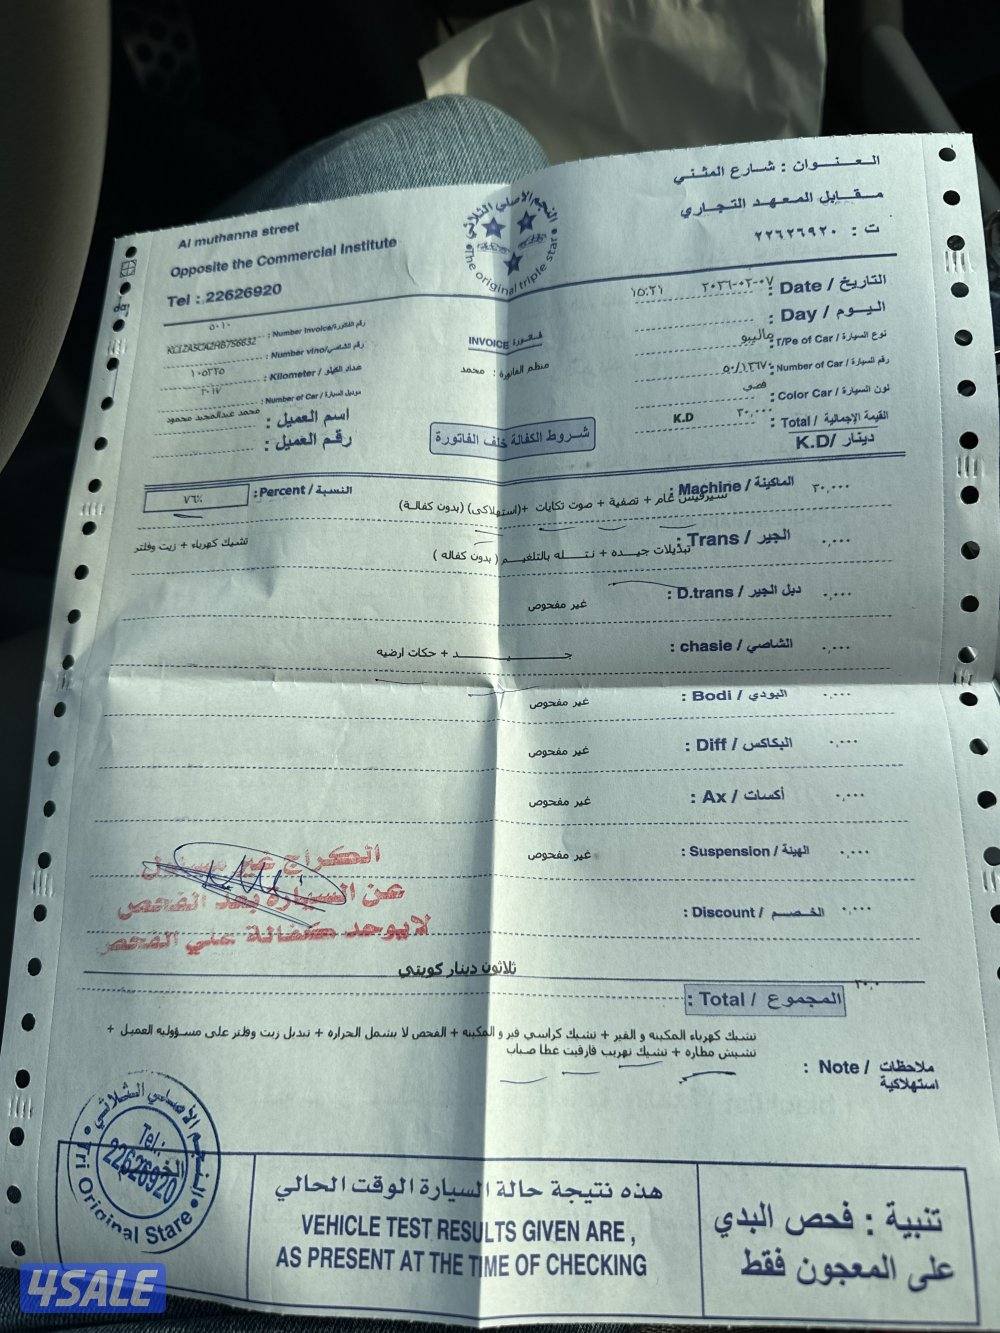 Al muthanna street
Opposite the Commercial Institute
Tel : 22626920
النجم الاصلي الثلاثي
The original triple star
العنوان : شارع المثنى
مقابل المعهد التجاري
ت : ٢٢٦٢٦٩٢٠
التاريخ / Date : ٢٠٢٦-٠٢-٠٧ ١٥:٢١
اليوم / Day :
نوع السيارة / T/Pe of Car : ماليبو
رقم السيارة / Number of Car : ٥٠/١٣٦٧٠
لون السيارة / Color Car : فضي
القيمة الإجمالية / Total : ٣٠,٠٠٠ K.D
دينار / K.D
فاتورة INVOICE
منظم الفاتورة : محمد
شروط الكفالة خلف الفاتورة
رقم الفاتورة/Number Invoice : ٥٠١٠
رقم الشاصي/Number vino :
عداد الكيلو / Kilometer : ١٠٥٣٣٥
موديل السيارة / Number of Car : ٢٠١٧
اسم العميل : محمد عبدالمجيد محمود
رقم العميل :
الماكينة / Machine : ٣٠,٠٠٠
سيرفيس عام + تصفية + صوت تكايات +(استهلاكى) (بدون كفالة)
النسبة / Percent : ٧٦٪
الجير / Trans : ٠,٠٠٠
تبديلات جيده + نتله بالتلغيم ( بدون كفاله )
تشيك كهرباء + زيت وفلتر
دبل الجير / D.trans : ٠,٠٠٠
غير مفحوص
الشاصي / chasie : ٠,٠٠٠
جيد + حكات ارضيه
البودي / Bodi : ٠,٠٠٠
غير مفحوص
البكاكس / Diff : ٠,٠٠٠
غير مفحوص
أكسات / Ax : ٠,٠٠٠
غير مفحوص
الهيئة / Suspension : ٠,٠٠٠
غير مفحوص
الخصم / Discount : ٠,٠٠٠
الكراج غير مسئول
عن السيارة بعد الفحص
لايوجد كفالة على الفحص
ثلاثون دينار كويتي
المجموع / Total :
ملاحظات / Note :
استهلاكية
تشيك كهرباء المكينه و القير + تشيك كراسي قير و المكينه + الفحص لا يشمل الحراره + تبديل زيت وفلتر على مسؤوليه العميل +
تشيش مطاره + تشيك تهريب فازقيت غطا صباب
النجم الاصلي الثلاثي
Tel.:
22626920
Tri Original Stare
هذه نتيجة حالة السيارة الوقت الحالي
VEHICLE TEST RESULTS GIVEN ARE ,
AS PRESENT AT THE TIME OF CHECKING
تنبية : فحص البدي
على المعجون فقط
4SALE